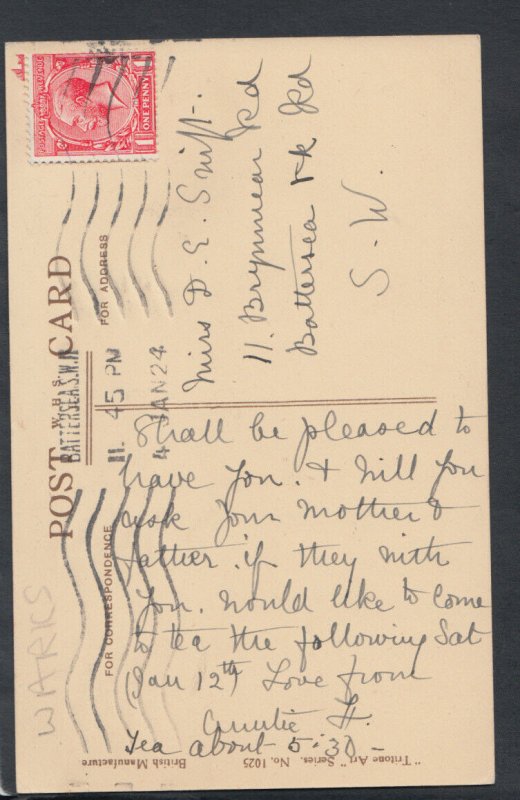 POST CARD
W.H.S.
FOR ADDRESS
FOR CORRESPONDENCE
ONE PENNY
BATTERSEA.S.W.11
11. 45 PM
4 JAN 24
Miss D. E. Swift.
11. Brynmear Rd
Battersea Pk Rd
S. W.
Shall be pleased to
have you. & Will you
ask your mother &
father. if they with
you. would like to come
to tea the following Sat
(Jan 12th) Love from
Auntie H.
Tea about 5.30 -
WARKS
"Tritone Art" Series. No. 1025
British Manufacture